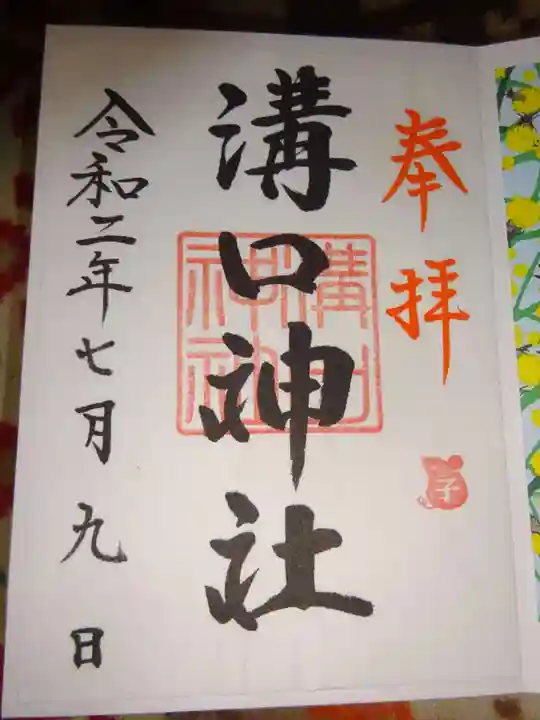 奉拝
溝口神社
溝口
神社
子
令和二年七月九日